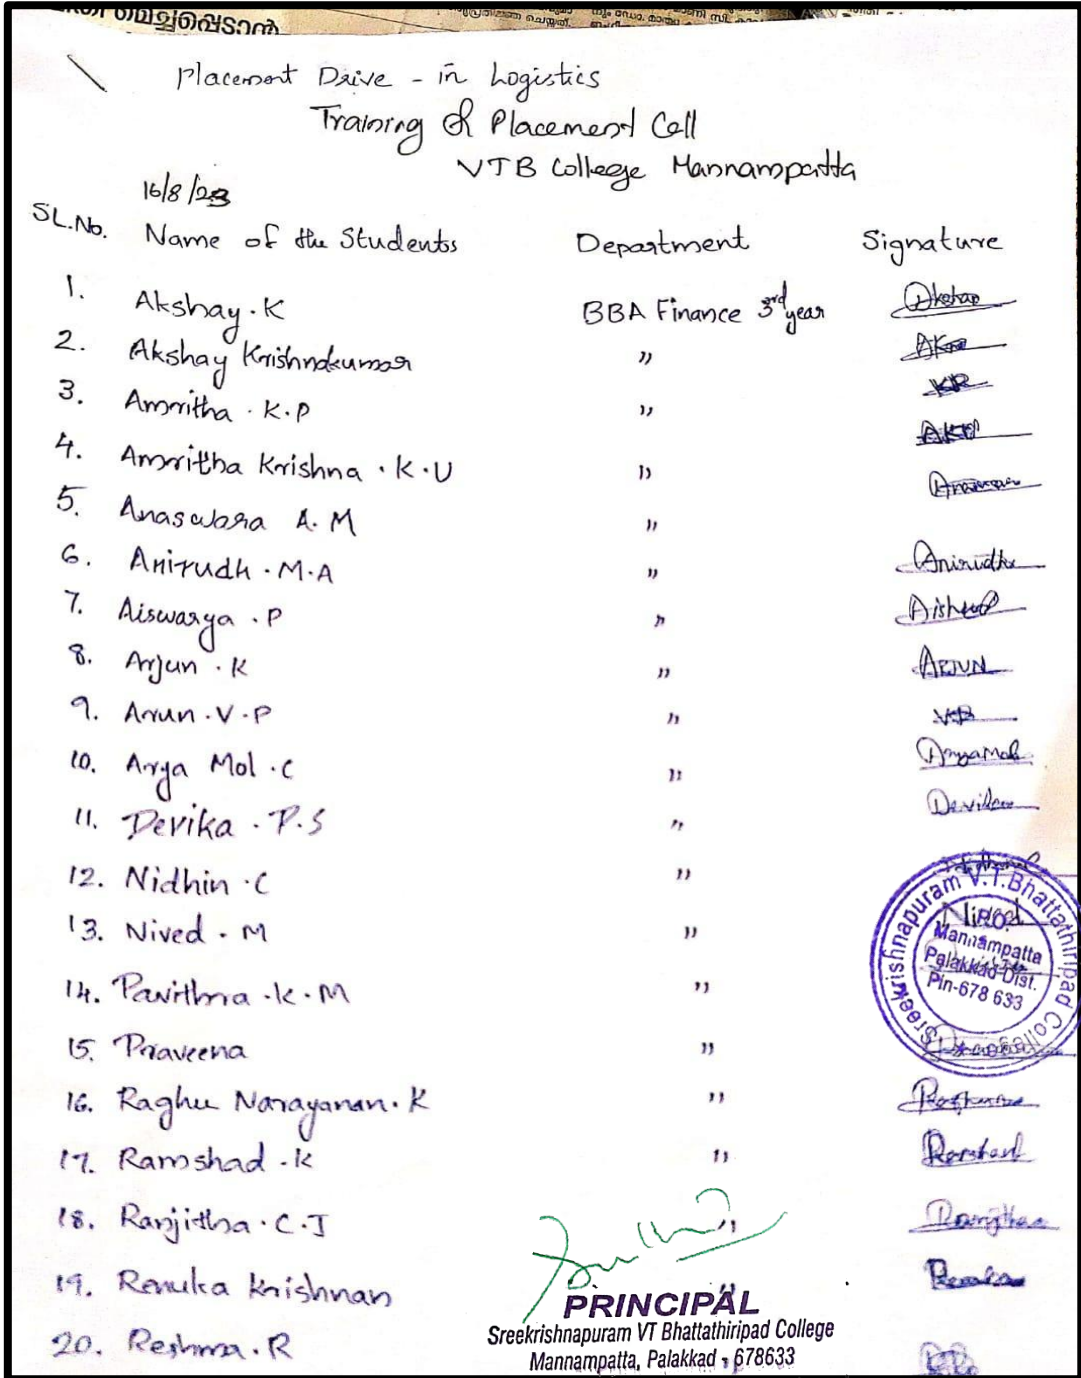 മെച്ചപ്പെടാൻ
Placement Drive - in Logistics
Training & Placement Cell
VTB College Mannampatta
16/8/23
SL.No. Name of the Students Department Signature
1. Akshay.K BBA Finance 3rd year
2. Akshay Krishnakumar "
3. Amritha.K.P "
4. Amritha Krishna.K.U "
5. Anaswara A.M "
6. Anirudh.M.A " Anirudh
7. Aiswarya.P "
8. Arjun.K " ARJUN
9. Arun.V.P "
10. Arya Mol.C " Aryamol
11. Devika.P.S " Devika
12. Nidhin.C "
13. Nived.M " Nived
14. Pavithra.K.M "
15. Praveena "
16. Raghu Narayanan.K "
17. Ramshad.K " Ramshad
18. Ranjitha.C.J " Ranjitha
19. Renuka Krishnan " Renuka
20. Reshma.R
Sreekrishnapuram V.T.Bhattathiripad College
P.O.
Mannampatta
Palakkad-Dist.
Pin-678 633
PRINCIPAL
Sreekrishnapuram VT Bhattathiripad College
Mannampatta, Palakkad - 678633